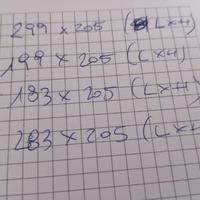 299 x 205 (LxH)
199 x 205 (LxH)
183 x 205 (LxH)
283 x 205 (LxH